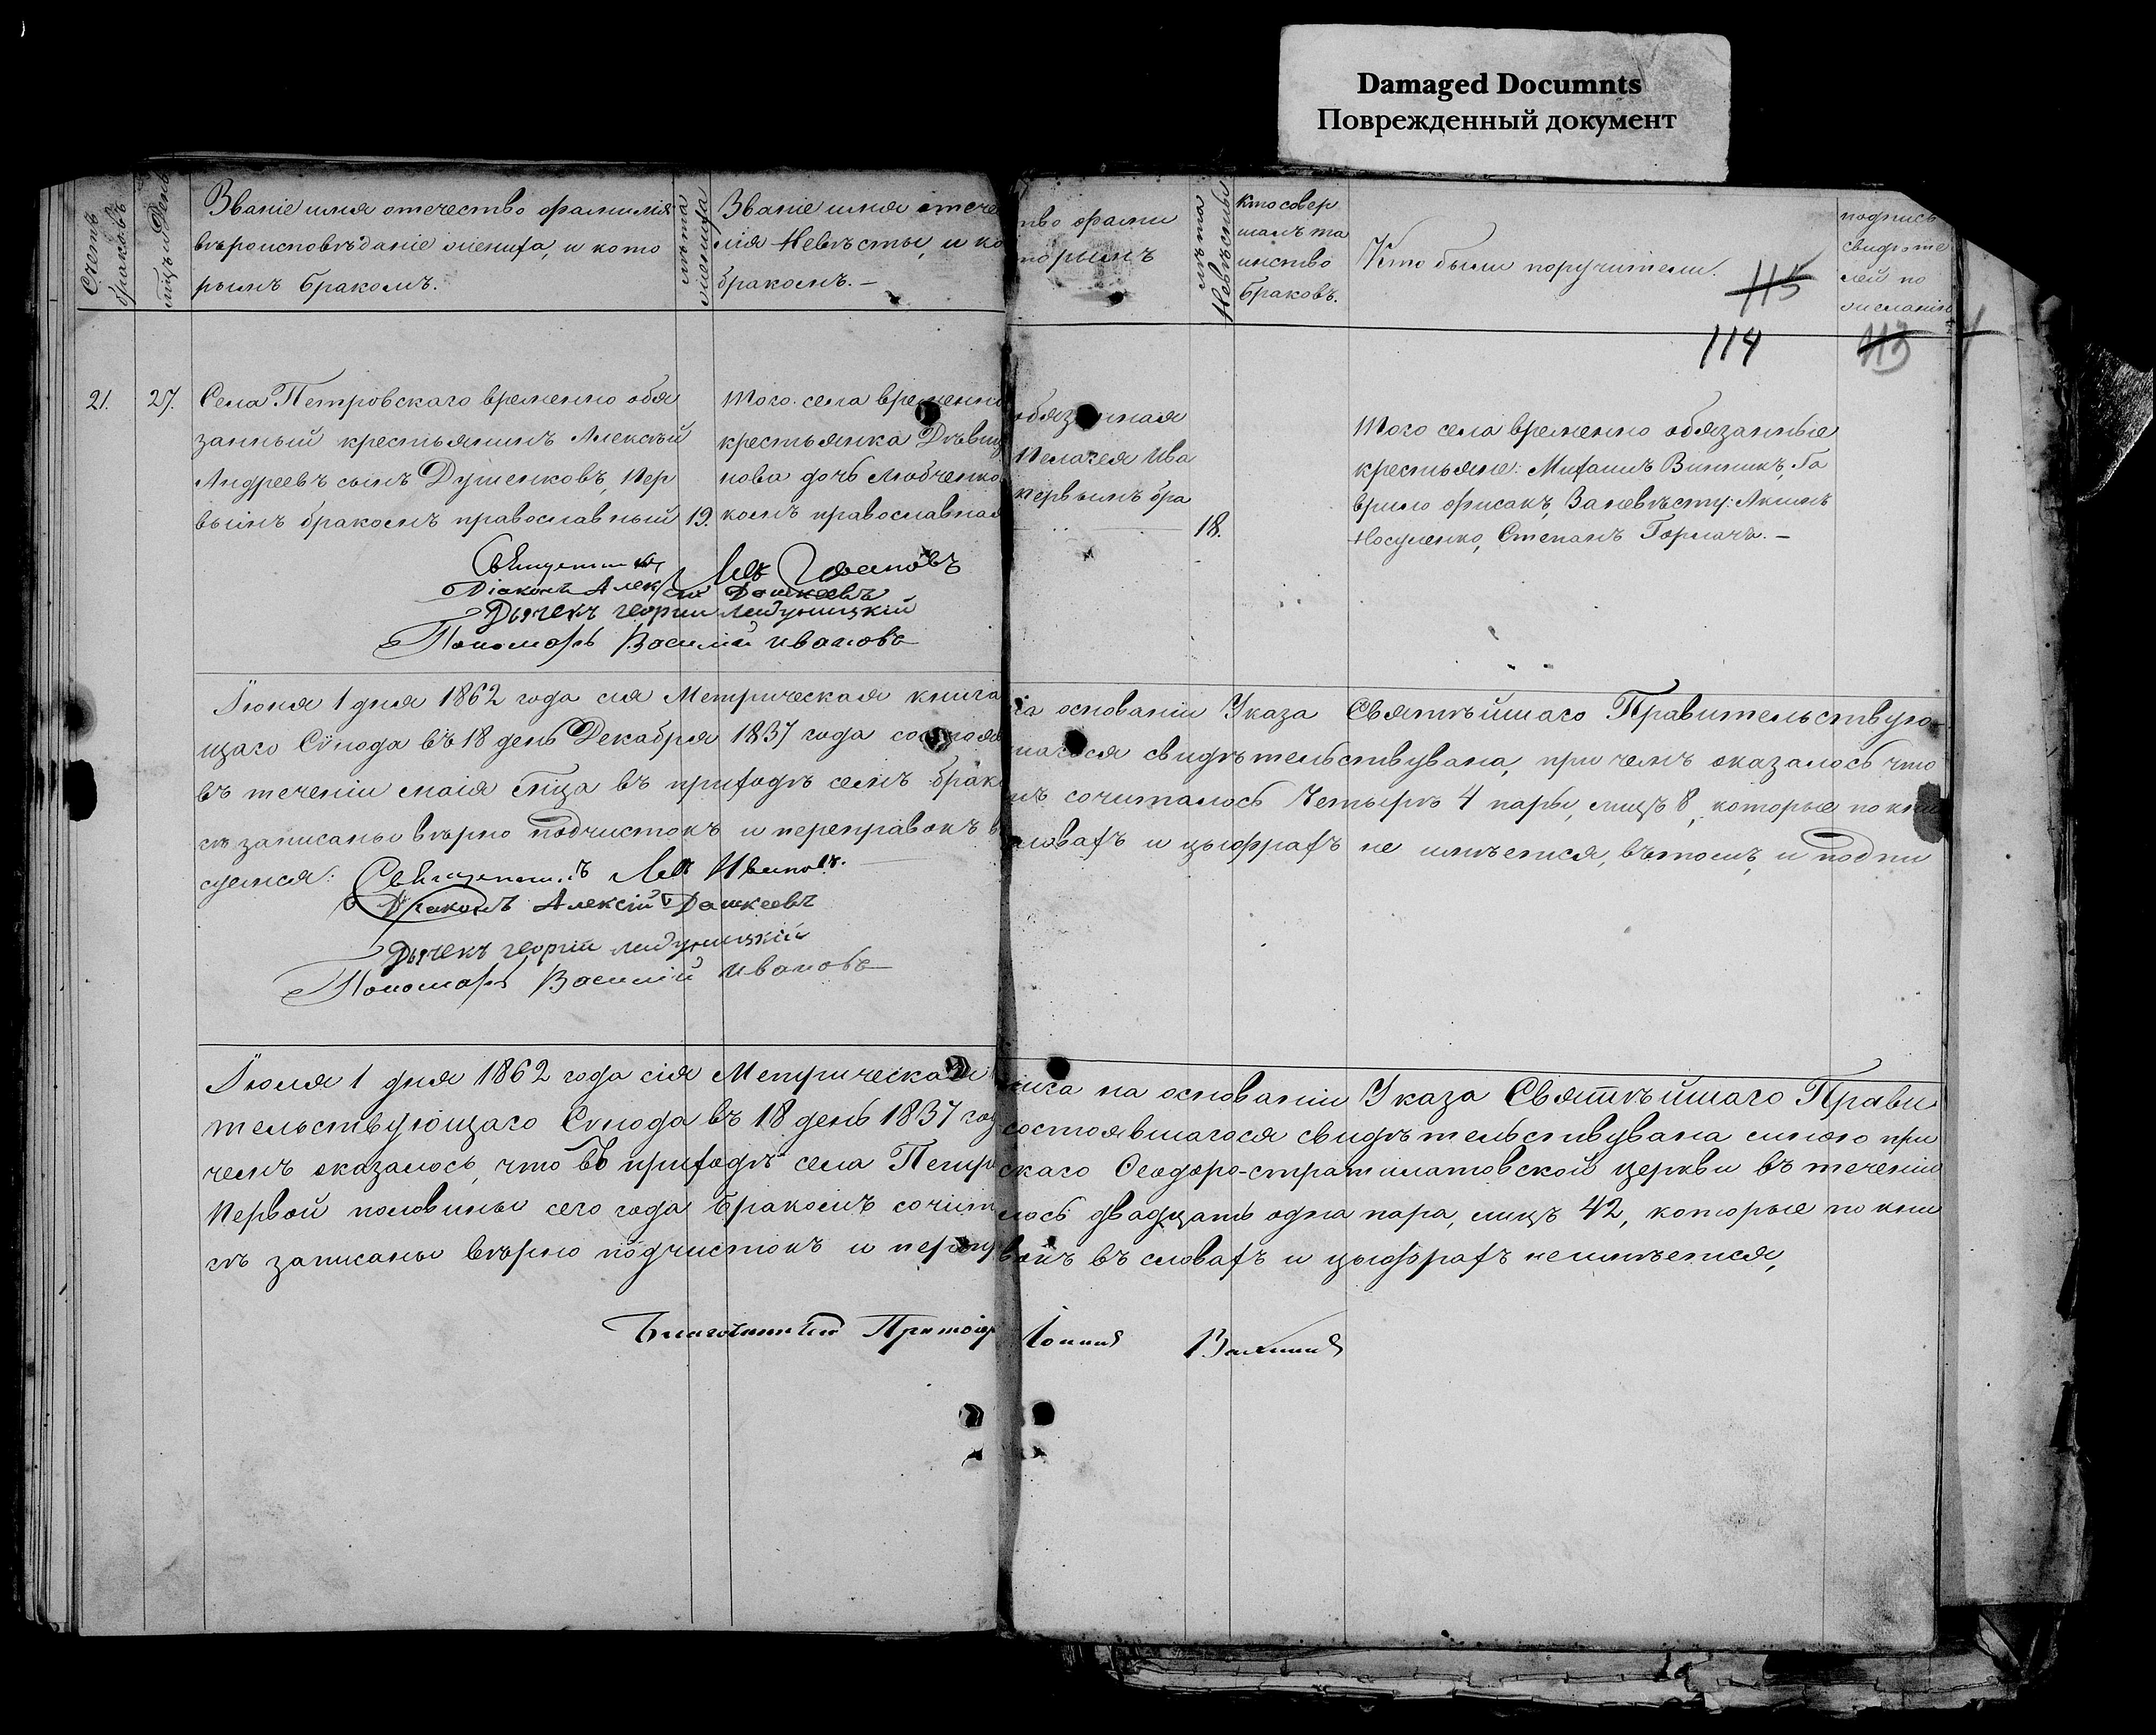 Damaged Documnts
Поврежденный документ
Счетъ браковъ
мцъ и День
Званіе имя отечество фамилія
вѣроисповѣданіе жениха, и кото
рымъ бракомъ.
лѣта жениха
Званіе имя отече
лія Невѣсты, и ко
бракомъ. —
тво фами
торымъ
лѣта Невѣсты
кто совер
шалъ та
инство
браковъ.
Кто были поручители.
115
114
подпись
свидѣте
лей по
желанію
113
21.
27.
Села Петровскаго временно обя
занный крестьянинъ Алексѣй
Андреевъ сынъ Душенковъ, пер
вымъ бракомъ православный
19.
того села временно
крестьянка Дѣвиц
нова дочь Любченко
комъ православная
обязанная
Пелагея Ива
первымъ бра
18.
того села временно обязанные
крестьяне: Михаилъ Винникъ, Га
врило Фисакъ, За невѣсту: Акимъ
Носуленко, Степанъ Горкачъ. —
Священникъ Левъ Ивановъ
Діаконъ Алексій Дашкеевъ
Дьячекъ Георгій
Пономарь Василій Ивановъ
Іюня 1 дня 1862 года сія Метрическая книга на основаніи Указа Святѣйшаго Правительствую
щаго Сѵнода въ 18 день Декабря 1837 года состоявшагося свидѣтельствувана, при чемъ оказалось что
въ теченіи маія мца въ приходѣ семъ бракомъ сочиталось Четырѣ 4 пары, лицъ 8, которые по кни
гѣ записаны вѣрно подчистокъ и переправокъ въ словахъ и цыфрахъ не имѣется, въ томъ, и подпи
суемся:
Священникъ Левъ Ивановъ.
Діаконъ Алексій Дашкеевъ
Дьячекъ Георгій
Пономарь Василій Ивановъ
Іюля 1 дня 1862 года сія Метрическая книга на основаніи Указа Святѣйшаго Прави
тельствующаго Сѵнода въ 18 день 1837 года состоявшагося свидѣтельствувана мною при
чемъ оказалось, что въ приходѣ села Петровскаго Ѳеодоро-стратилатовской церкви въ теченіи
первой половины сего года бракомъ сочиталось двадцать одна пара, лицъ 42, которые по кни
гѣ записаны вѣрно подчистокъ и переправокъ въ словахъ и цыфрахъ неимѣется,
Благочинный Протоіер Іоаннъ